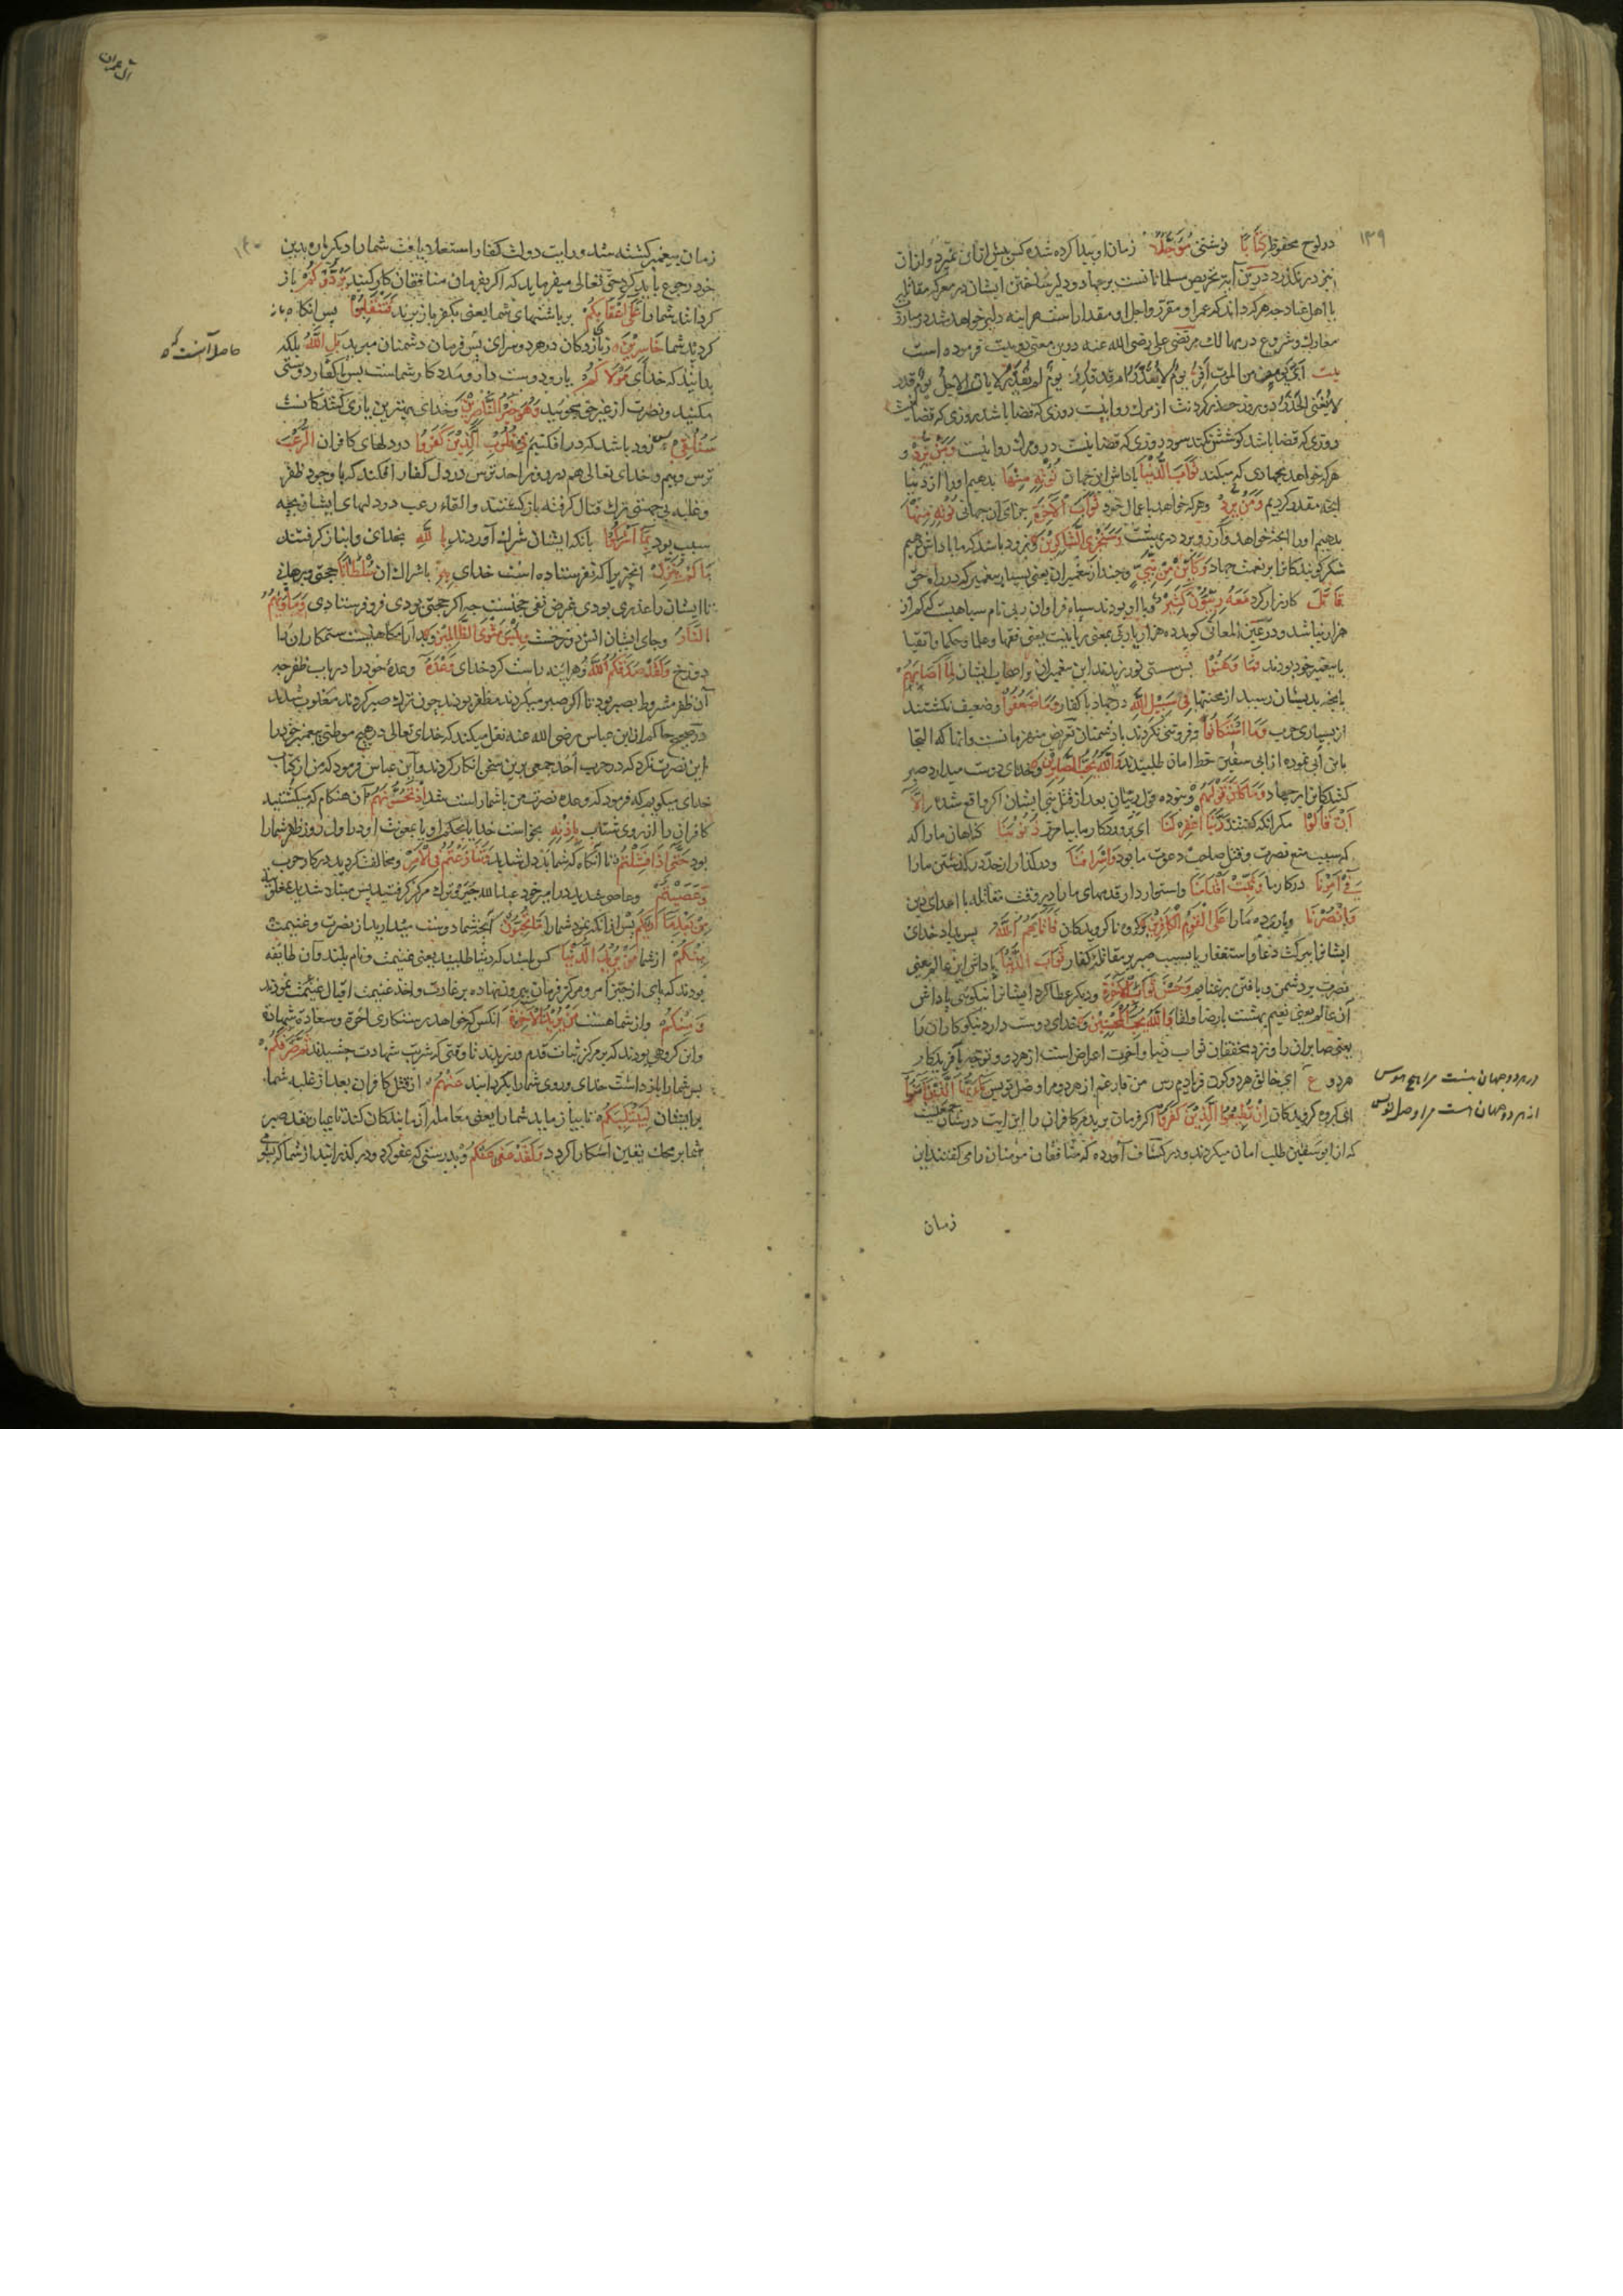 ۱۳۹
در لوح محفوظ كِتَابًا نوشتنی مُؤَجَّلًا زمان او پیدا کرده شده کس پیش از آن نمیرد و از آن
نیز درنگذرد درین آیة تحریص مسلمانانست بر جهاد و دلیر ساختن ایشان در معرکه مقاتله
با اهل عناد چه هرکه داند که عمر او مقرر و اجل او مقدار است هراینه دلیر خواهد شد در
معارک و شروع در مهالک مرتضی علی رضی الله عنه درین معنی دو بیت فرموده است
بیت ای یومی من الموت افر یوم لا یقدر ام یوم قدر یوم لم یقدر لا یات الاجل یوم قدر
لا یغنی الحذر دو روز حذر کردن از مرگ روا نیست روزی که قضا باشد روزی که قضا نیست
روزی که قضا باشد کوشش نکند سود روزی که قضا نیست درو مرگ روا نیست وَمَنْ يُرِدْ و
هرکه خواهد بجهادی که میکند ثَوَابَ الدُّنْيَا پاداش این جهان نُؤْتِهِ مِنْهَا بدهیم او را از دنیا
آنچه مقدر کردیم وَمَنْ يُرِدْ و هرکه خواهد باعمال خود ثَوَابَ الْآخِرَةِ جزای آن جهانی نُؤْتِهِ مِنْهَا
بدهیم او را آنچه خواهد و آرزو برد در بهشت وَسَنَجْزِي الشَّاكِرِينَ و زود باشد که ما پاداش دهیم
شکرگویندکانرا بر نعمت جهاد وَكَأَيِّنْ مِنْ نَبِيٍّ و چند از پیغمبران یعنی بسیار پیغمبر که در راه حق
قَاتَلَ کارزار کرد مَعَهُ رِبِّيُّونَ كَثِيرٌ و با او بودند سپاه فراوان ربی نام سپاهیست که کم از
هزار نباشد و در عین المعانی گوید ده هزار یا ربی بمعنی ربانیست یعنی فقها و علما و حکما و اتقیا
با پیغمبر خود بودند فَمَا وَهَنُوا پس سستی نورزیدند این پیغمبران و اصحاب ایشان لِمَا أَصَابَهُمْ
بانچه بدیشان رسید از محنتها فِي سَبِيلِ اللَّهِ در جهاد با کفار وَمَا ضَعُفُوا و ضعیف نکشتند
از بسیاری حرب وَمَا اسْتَكَانُوا و فروتنی نکردند با دشمنان تعریض منهزمانست و آنها که التجا
بابن ابی نموده از ابی سفین خط امان طلبیدند وَاللَّهُ يُحِبُّ الصَّابِرِينَ و خدای دوست میدارد صبر
کنندکانرا بر جهاد وَمَا كَانَ قَوْلَهُمْ و نبوده قول ربیان بعد از قتل نبی ایشان اکر واقع شده إِلَّا
أَنْ قَالُوا مکر آنکه گفتند رَبَّنَا اغْفِرْ لَنَا ای پروردکار ما بیامرز ذُنُوبَنَا کناهان ما را که
که سبب منع نصرت و قتل صاحب دعوت ما بود وَإِسْرَافَنَا و درکذار از حد درکذشتن ما را
فِي أَمْرِنَا در کار ما وَثَبِّتْ أَقْدَامَنَا و استوار دار قدمهای ما را در وقت مقاتله با اعدای دین
وَانْصُرْنَا و یاری ده ما را عَلَى الْقَوْمِ الْكَافِرِينَ بر کروه ناکرویدکان فَآتَاهُمُ اللَّهُ پس بداد خدای
ایشانرا ببرکت دعا و استغفار یا بسبب صبر بر مقاتله کفار ثَوَابَ الدُّنْيَا پاداش این عالم یعنی
نصرت بر دشمن و یافتن بر غنایم وَحُسْنَ ثَوَابِ الْآخِرَةِ و دیکر عطا کرد ایشانرا نیکویی پاداش
آن عالم یعنی نعیم بهشت با رضا و لقا وَاللَّهُ يُحِبُّ الْمُحْسِنِينَ و خدای دوست دارد نیکوکاران را
یعنی صابران را و نزد محققان ثواب دنیا و آخرت اعراض است از هر دو و توجه بآفریدکار
هر دو ع ای خالق هر دو کون فریادم رس من فارغم از هر دو مرا وصل تو بس يَا أَيُّهَا الَّذِينَ آمَنُوا
ای کروه کرویدکان إِنْ تُطِيعُوا الَّذِينَ كَفَرُوا اکر فرمان برید مر کافران را این ایت در شان جمعیست
که از ابو سفین طلب امان میکردند و در کشاف آورده که منافقان مومنان را می کفتند این
زمان
در هر دو جهان نیست مرا هیچ هوس
از هر دو جهان هست مرا وصل تو بس
آل عمران
۱۴۰
زمان پیغمبر کشته شد و رایت دولت کفار استعلا یافت شما را دیکر باره بدین
خود رجوع باید کرد حق تعالی میفرماید که اکر بفرمان منافقان کار کنید يَرُدُّوكُمْ باز
کردانند شما را عَلَى أَعْقَابِكُمْ بر پاشنهای شما یعنی بکفر باز برند فَتَنْقَلِبُوا پس آنکاه باز
کردید شما خَاسِرِينَ زیانزدکان در هر دو سرای پس فرمان دشمنان مبرید بَلِ اللَّهُ بلکه
بدانید که خدای مَوْلَاكُمْ یار و دوست دار و مدد کار شماست پس با کفار دوستی
مکنید و نصرت از غیر حق مجوئید وَهُوَ خَيْرُ النَّاصِرِينَ و خدای بهترین یاری کنندکانست
سَنُلْقِي زود باشد که در افکنیم فِي قُلُوبِ الَّذِينَ كَفَرُوا در دلهای کافران الرُّعْبَ
ترس و بیم و خدای تعالی هم در روز احد ترس در دل کفار افکند که با وجود ظفر
و غلبه بی جهتی ترک قتال کرفته باز کشتند و القاء رعب در دلهای ایشان بچه
سبب بود بِمَا أَشْرَكُوا بانکه ایشان شرک آوردند بِاللَّهِ بخدای و انباز کرفتند
مَا لَمْ يُنَزِّلْ آنچیزیرا که نفرستاده است خدای بِهِ باشراک آن سُلْطَانًا حجتی و برهانی
تا ایشان را عذری بودی غرض نفی حجتست چه اکر حجتی بودی فرو فرستادی وَمَأْوَاهُمُ
النَّارُ و جای ایشان آتش دوزخست وَبِئْسَ مَثْوَى الظَّالِمِينَ و بد آرامکاهیست ستمکاران را
دوزخ وَلَقَدْ صَدَقَكُمُ اللَّهُ و هراینه راست کرد خدای وَعْدَهُ وعدهٔ خود را در باب ظفر چه
آن ظفر مشروط بصبر بود تا اکر صبر میکردند مظفر بودند چون ترک صبر کردند مغلوب شدند
در صحیح حاکم از ابن عباس رضی الله عنه نقل میکند که خدای تعالی در هیچ موطنی پیغمبر خود را
این نصرت نکرد که در حرب احد جمعی برین سخن انکار کردند و ابن عباس فرمود که من از کتاب
خدای میکویم که فرمود که وعده نصرت من با شما راست شد إِذْ تَحُسُّونَهُمْ آن هنکام که میکشتید
کافران را از روی شتاب بِإِذْنِهِ بخواست خدا یا بحکم او یا بمعونت او در اول روز ظفر شما را
بود حَتَّى إِذَا فَشِلْتُمْ تا آنکاه که شما بددل شدید وَتَنَازَعْتُمْ فِي الْأَمْرِ و مخالفت کردید در کار حرب
وَعَصَيْتُمْ و عاصی شدید در امیر خود عبد الله جبیر و ترک مرکز کرفتید پس مبتلا شدید بمغلوبیه
مِنْ بَعْدِ مَا أَرَاكُمْ پس از آنکه نمود شما را مَا تُحِبُّونَ آنچه شما دوست میدارید از نصرت و غنیمت
مِنْكُمْ از شما مَنْ يُرِيدُ الدُّنْيَا کس است که دنیا طلبید یعنی غنیمت و نام بلند و آن طایفه
بودند که پای از حیز امر و مرکز فرمان بیرون نهاده بر غارت و اخذ غنیمت اقبال نمودند
وَمِنْكُمْ و از شما هست مَنْ يُرِيدُ الْآخِرَةَ آنکس که خواهد رستکاری اخرة و سعادة شهادة
و این کروهی بودند که بر مرکز ثبات قدم ورزیدند تا وقتی که شربت شهادت چشیدند ثُمَّ صَرَفَكُمْ
پس شما را باز داشت خدای و روی شما را بکردانید عَنْهُمْ از قتل کافران بعد از غلبه شما
بر ایشان لِيَبْتَلِيَكُمْ تا بیازماید شما را یعنی معامله آزمایندکان کند تا عیار نقد صبر
شما بر محک یقین آشکارا کردد وَلَقَدْ عَفَا عَنْكُمْ و بدرستی که عفو کرد و درکذرانید از شما که
حاصل آنست که